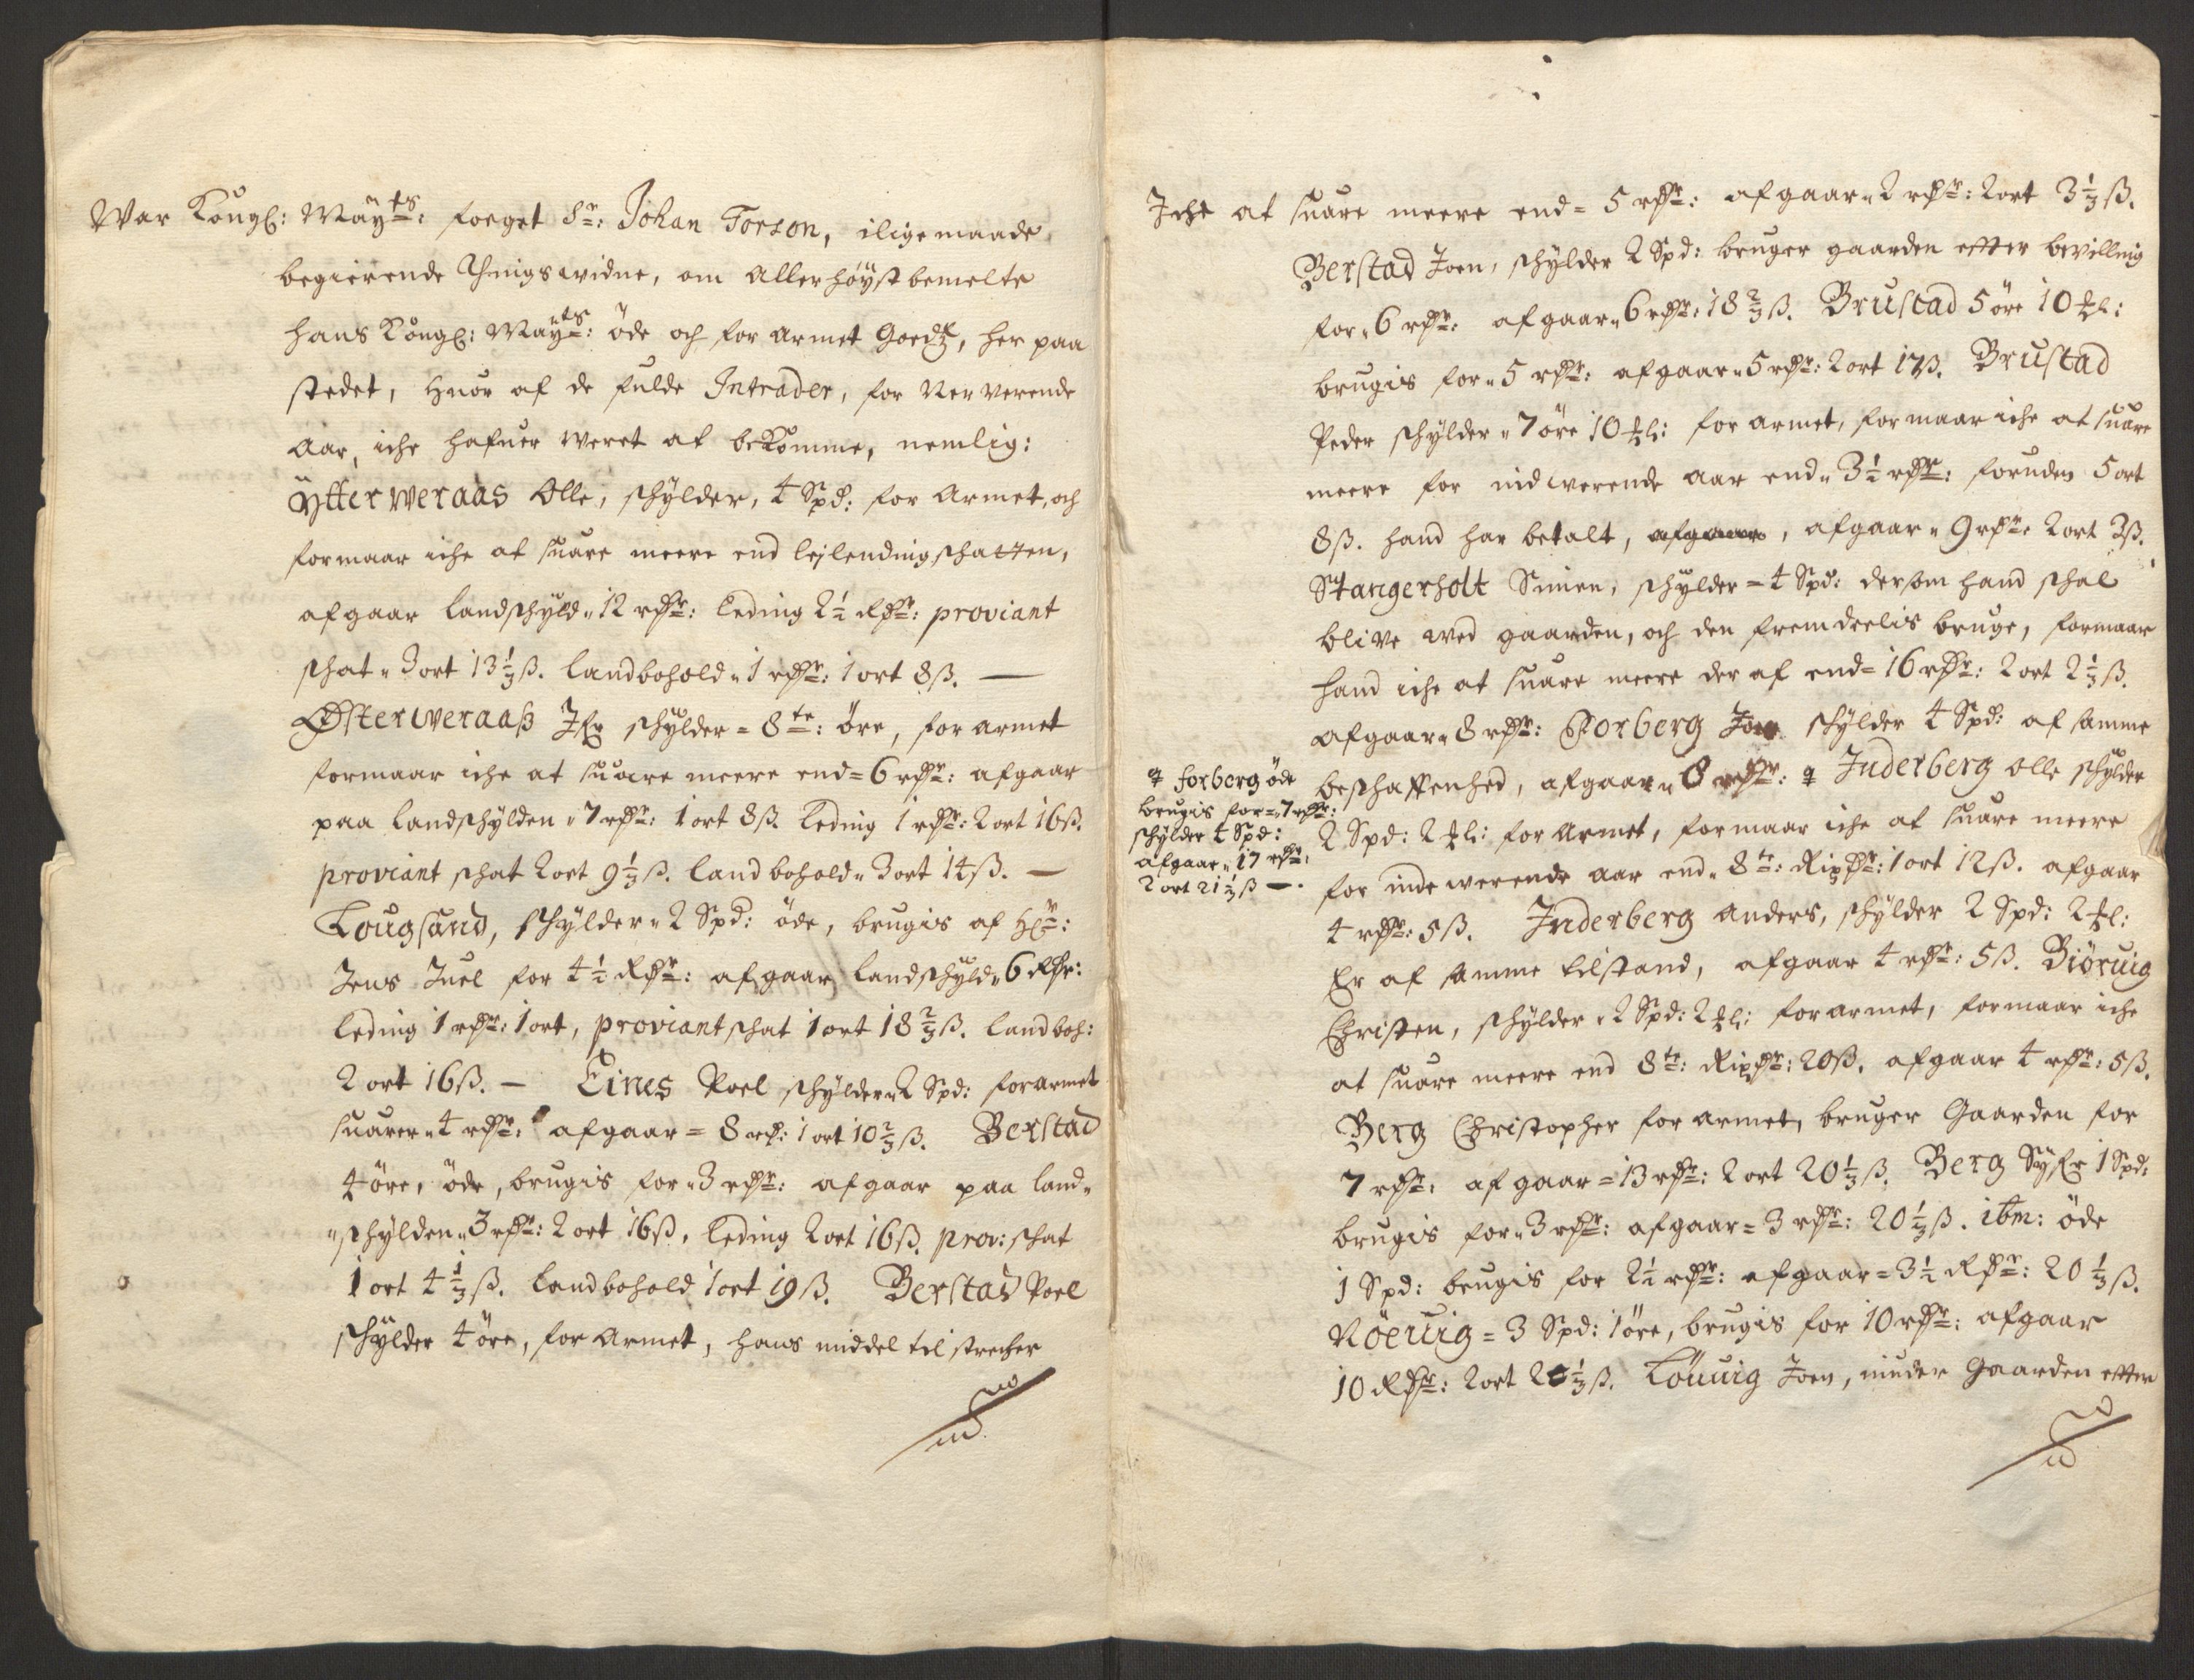 War Kongl: Mayts: foeget Sr: Johan Torson, iligemaade
begierende Thingswidne, om Allerhöystbemelte
hans Kongl: Mayts: öde och forarmet Goedtz, her paa
stedet, huor af de fulde Intrader, for Nerverende
Aar, iche hafuer weret at bekomme, nemlig:
Ytterweraas Olle, schylder, 4 Spd: for Armet, och
formaar iche at suare meere end leylendingschatten,
afgaar Landschyld " 12 rdr: leding 2½ Rdr: proviant
schat " 3 ort 13⅓ ß. Landbohold " 1 rdr: 1 ort 8 ß. —
Østerweraaß schylder = 8te: öre, for armet
formaar iche at suare meere end = 6 rdr: afgaar
paa Landschylden " 7 rdr: 1 ort 8 ß. leding 1 rdr: 2 ort 16 ß.
proviant schat 2 ort 9⅓ ß. Landbohold " 3 ort 14 ß. —
Lougsand, schylder " 2 Spd: öde, brugis af Hr:
Jens Juel for 4½ Rdr: afgaar Landschyld " 6 Rdr:
leding 1 rdr: 1 ort, proviantschat 1 ort 18⅔ ß. Landboh:
2 ort 16 ß. — Eines Poel schylder " 2 Spd: forarmet
suarer " 4 rdr: afgaar = 8 rd: 1 ort 10⅔ ß. Berstad
4 öre, öde, brugis for " 3 rdr: afgaar paa land "
" schylden " 3 rdr: 2 ort 16 ß, leding 2 ort 16 ß. prov: schat
1 ort 4⅓ ß. Landbohold 1 ort 19 ß. Berstad Poel
schylder 4 öre, for Armet, hans middel tilstrecher
Icht at suare meere end = 5 rdr: afgaar " 2 rdr: 2 ort 3⅓ ß.
Berstad Joen, schylder 2 Spd: bruger gaarden efter bevillnig
for " 6 rdr: afgaar " 6 rdr: 18⅔ ß. Brustad 5 öre 10
brugis for " 5 rdr: afgaar " 5 rdr: 2 ort 17 ß. Brustad
Peder schylder " 7 öre 10 for armet, formaar iche at suare
meere for nidwerende aar end " 3½ rdr: foruden 5 ort
8 ß. hand har betalt, afgaar, afgaar " 9 rdr: 2 ort 3 ß.
Stangerholt Simen, schylder = 4 Spd: dersom hand schal
blive wed gaarden, och den fremdeelis bruge, formaar
hand iche at suare meere der af end = 16 rdr: 2 ort 2⅓ ß.
afgaar " 8 rdr: Forberg Joen schylder 4 Spd: af samme
beschaffenhed, afgaar " 8 rdr: Inderberg Olle schylder
forberg öde
brugis for = 7 rdr:
schylder 4 Spd:
afgaar " 17 rdr:
2 ort 21⅓ ß —.
2 Spd: 2 for Armet, formaar iche at suare meere
for indewerende aar end " 8te: Rixdr: 1 ort 12 ß. afgaar
4 rdr: 5 ß. Inderberg Anders, schylder 2 Spd: 2
Er af samme tilstand, afgaar 4 rdr: 5 ß. Biöruig
Christen, schylder " 2 Spd: 2 forarmet, formaar iche
at suare meere end 8te: Rixdr: 20 ß. afgaar 4 rdr: 5 ß.
Berg Christopher for armet, bruger Gaarden for
7 rdr: afgaar = 13 rdr: 2 ort 20⅓ ß. Berg 1 Spd:
brugis for " 3 rdr: afgaar = 3 rdr: 20⅓ ß. ibm: öde
1 Spd: brugis for 2½ rdr: afgaar = 3½ Rdr: 20⅓ ß.
Röeuig = 3 Spd: 1 öre, brugis for 10 rdr: afgaar
10 Rdr: 2 ort 2 ⅓ ß. Löuuig Joen, niuder Gaarden efter